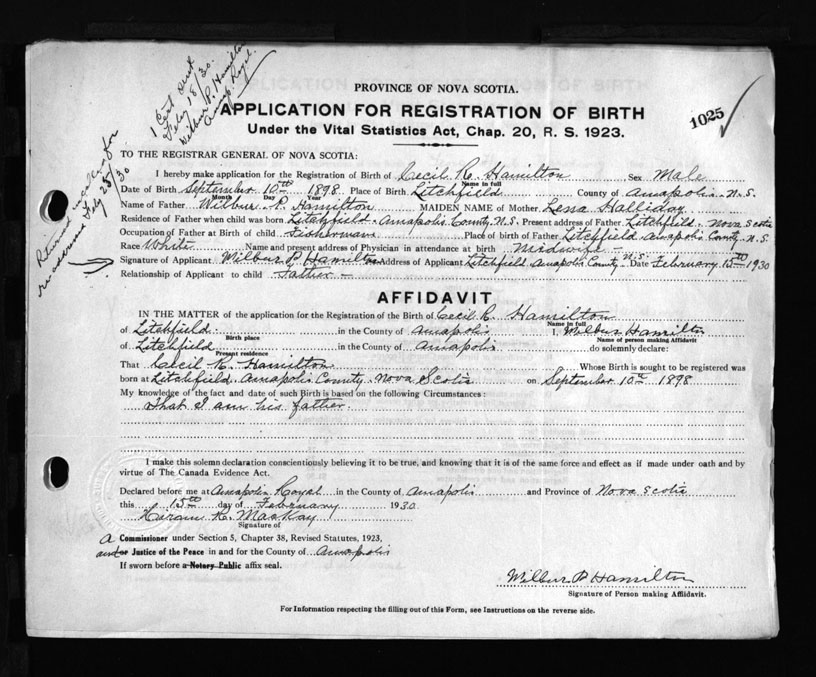 1 Cert Sent
Feby 18/30.
Wilbur P. Hamilton
Annap. Royal.
Returned for
re address Feby 25/30
PROVINCE OF NOVA SCOTIA.
APPLICATION FOR REGISTRATION OF BIRTH
Under the Vital Statistics Act, Chap. 20, R. S. 1923.
1025
TO THE REGISTRAR GENERAL OF NOVA SCOTIA:
I hereby make application for the Registration of Birth of Cecil R. Hamilton Sex Male
Name in full
Date of Birth September 10th 1898 Place of Birth Litchfield County of Annapolis N.S.
Month Day Year
Name of Father Wilbur P. Hamilton MAIDEN NAME of Mother Lena Halliday
Residence of Father when child was born Litchfield Annapolis County N.S. Present address of Father Litchfield Nova Scotia
Occupation of Father at Birth of child Fisherman Place of birth of Father Litchfield Annapolis County N.S
Race White Name and present address of Physician in attendance at birth Midwife
Signature of Applicant Wilbur P Hamilton Address of Applicant Litchfield Annapolis County N.S. Date February 15th 1930
Relationship of Applicant to child Father
AFFIDAVIT
IN THE MATTER of the application for the Registration of the Birth of Cecil R. Hamilton
Name in full
of Litchfield in the County of Annapolis I, Wilbur Hamilton
Birth place Name of person making Affidavit
of Litchfield in the County of Annapolis do solemnly declare:
Present residence
That Cecil R. Hamilton Whose Birth is sought to be registered was
born at Litchfield Annapolis County Nova Scotia on September 10th 1898
My knowledge of the fact and date of such Birth is based on the following Circumstances:
That I am his father.
I make this solemn declaration conscientiously believing it to be true, and knowing that it is of the same force and effect as if made under oath and by
virtue of The Canada Evidence Act.
Declared before me at Annapolis Royal in the County of Annapolis and Province of Nova Scotia
this 15th day of February 1930
Hiram R. MacKay
Signature of
A Commissioner under Section 5, Chapter 38, Revised Statutes, 1923,
and or Justice of the Peace in and for the County of Annapolis
If sworn before a Notary Public affix seal.
Wilbur P Hamilton
Signature of Person making Affidavit.
For Information respecting the filling out of this Form, see Instructions on the reverse side.